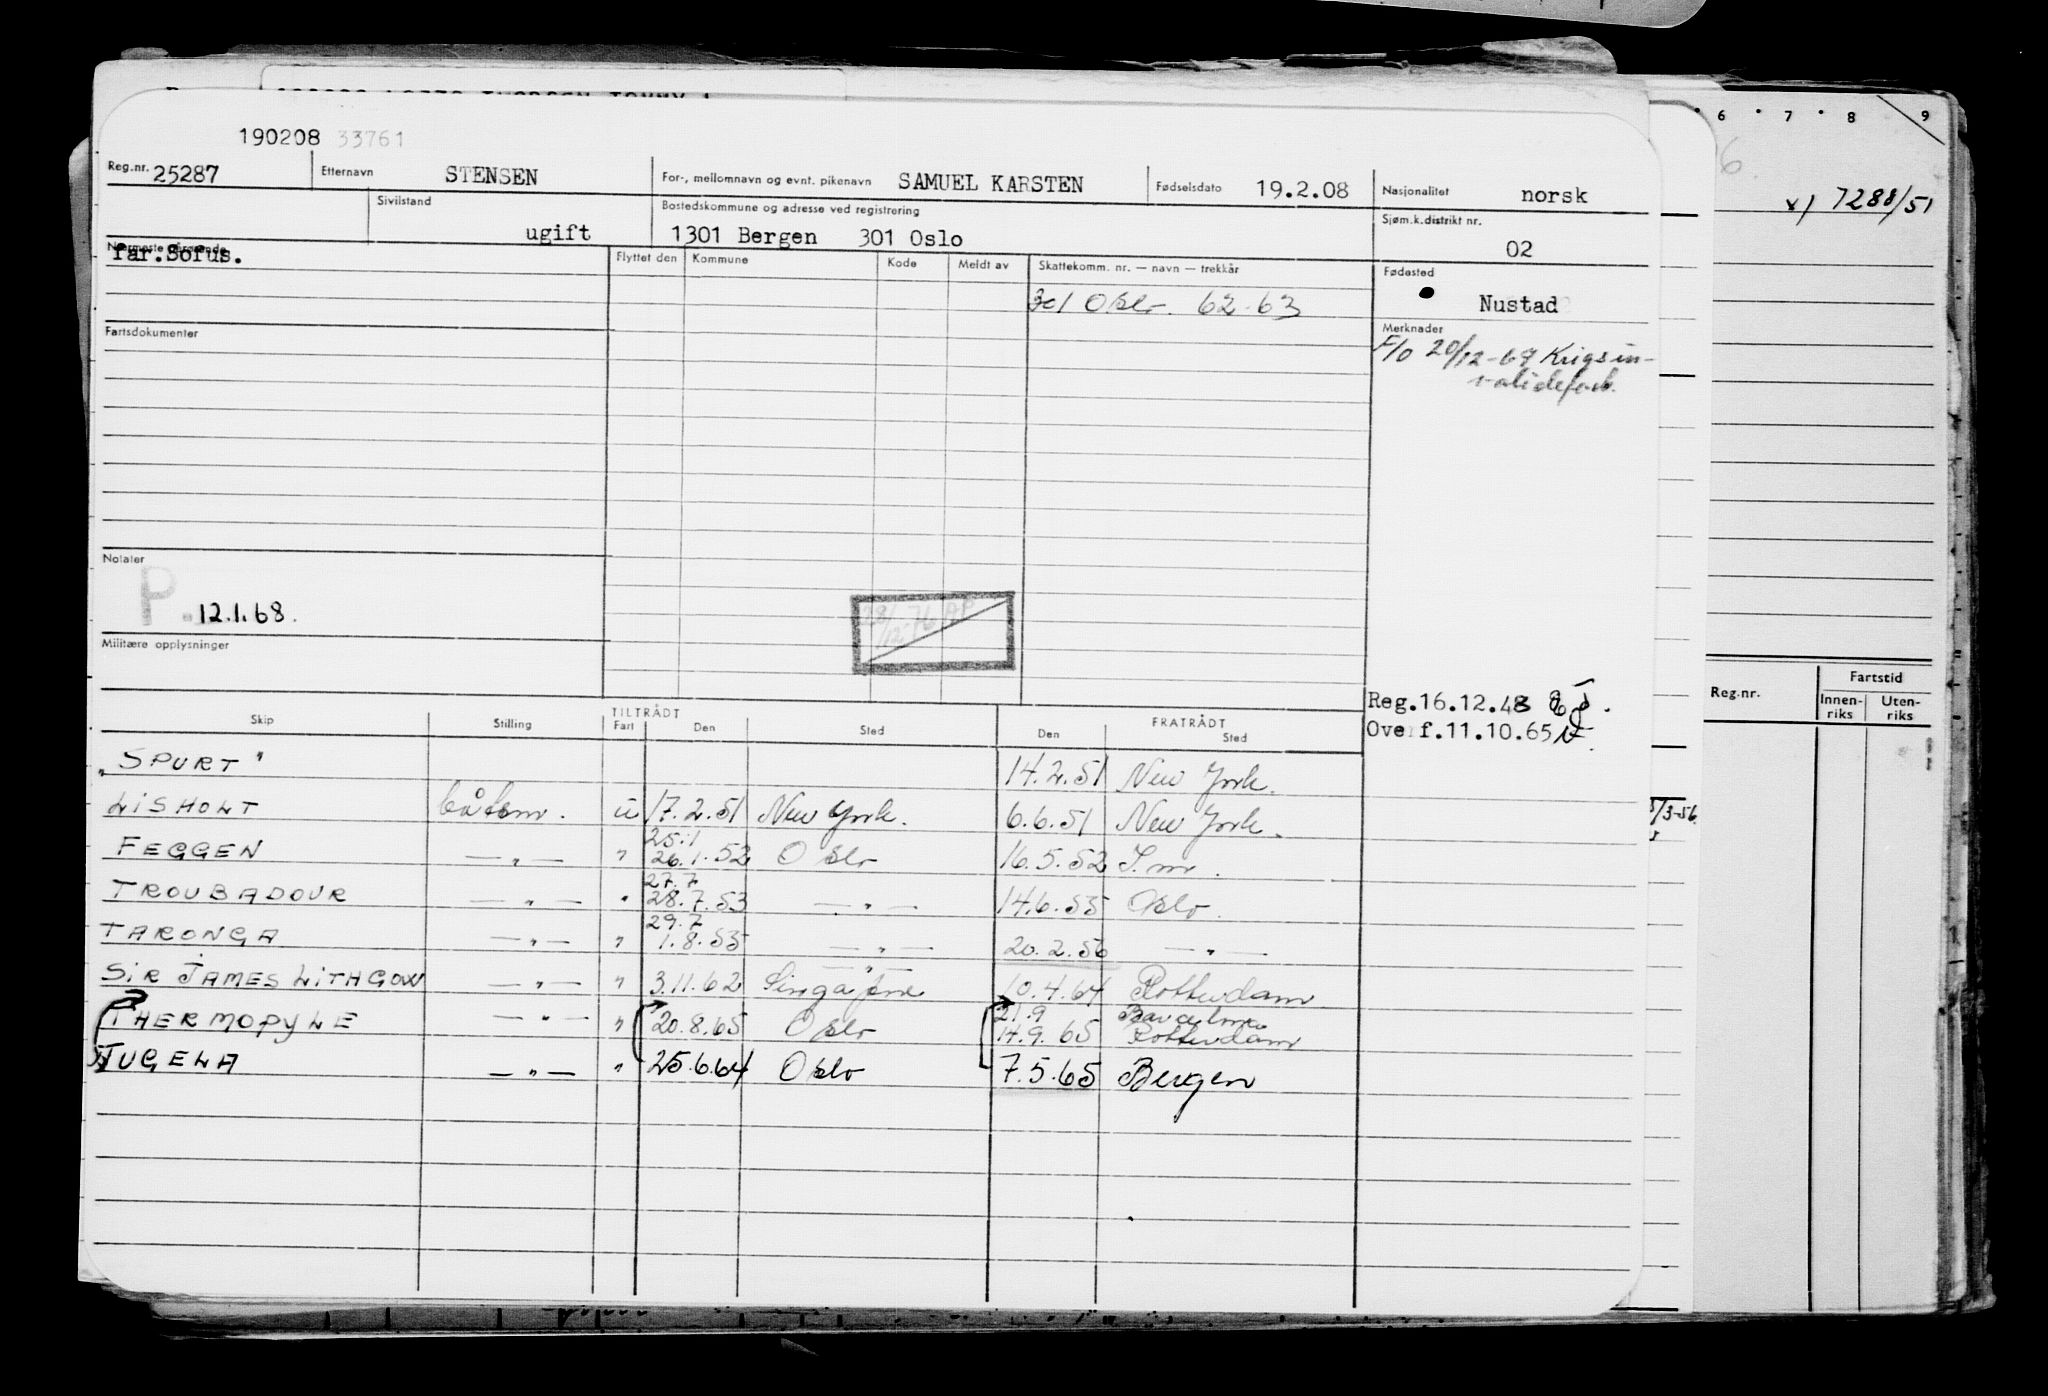 6 7 8 9
190208 33761
Reg.nr. 25287 Etternavn STENSEN For-, mellomnavn og evnt. pikenavn SAMUEL KARSTEN Fødselsdato 19.2.08 Nasjonalitet norsk
x) 7288/51
Sivilstand ugift Bostedskommune og adresse ved registrering 1301 Bergen 301 Oslo Sjøm.k.distrikt nr. 02
Nærmeste pårørende far.Sofus.
Flyttet den Kommune Kode Meldt av Skattekomm. nr. — navn — trekkår Fødested
301 Oslo. 62-63 Nustad
Fartsdokumenter Merknader
F/o 20/12-67 Krigsin-
valideforb.
Notater
P. 12.1.68.
28/12-76 AP
Militære opplysninger
Reg.nr. Fartstid
Innen-riks Uten-riks
Reg.16.12.48
Overf.11.10.65
TILTRÅDT FRATRÅDT
Skip Stilling Fart Den Sted Den Sted
„SPURT" 14.2.51 New York.
LISHOLT båtsm. u 17.2.51 New York. 6.6.51 New York.
25.1
FEGGEN —„— " 26.1.52 Oslo 16.5.52
27.7
TROUBADOUR —„— " 28.7.53 —„— 14.6.55 Oslo.
29.7
TARONGA —„— " 1.8.55 —„— 20.2.56 —„—
—„—
SIR JAMES LITHGOW —„— " 3.11.62 Singapore 10.4.64 Rotterdam
21.9 Barcelona
THERMOPYLE —„— " 20.8.65 Oslo 14.9.65 Rotterdam
TUGELA —„— " 25.6.64 Oslo 7.5.65 Bergen